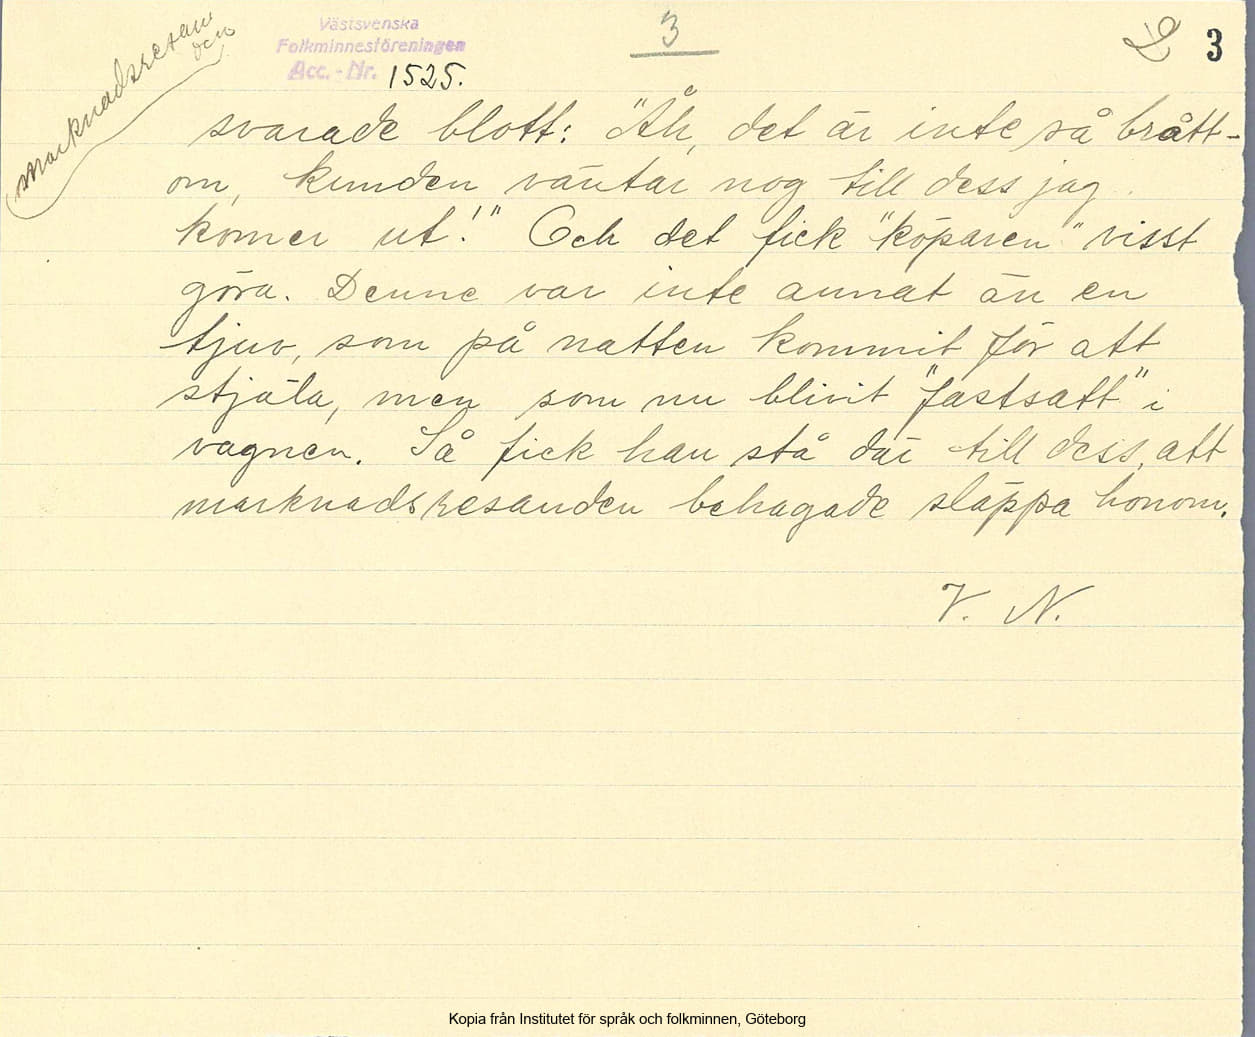 marknadsresan
den
Västsvenska
Folkminnesföreningen
Acc. - Nr. 1525.
3
3
svarade blott: "Åh, det är inte så brått-
om, kunden väntar nog till dess jag
komer ut!" Och det fick "köparen" visst
göra. Denne var inte annat än en
tjuv, som på natten kommit för att
stjäla, men som nu blivit "fastsatt" i
vagnen. Så fick han stå där till dess, att
marknadsresanden behagade släppa honom.
V. N.
Kopia från Institutet för språk och folkminnen, Göteborg